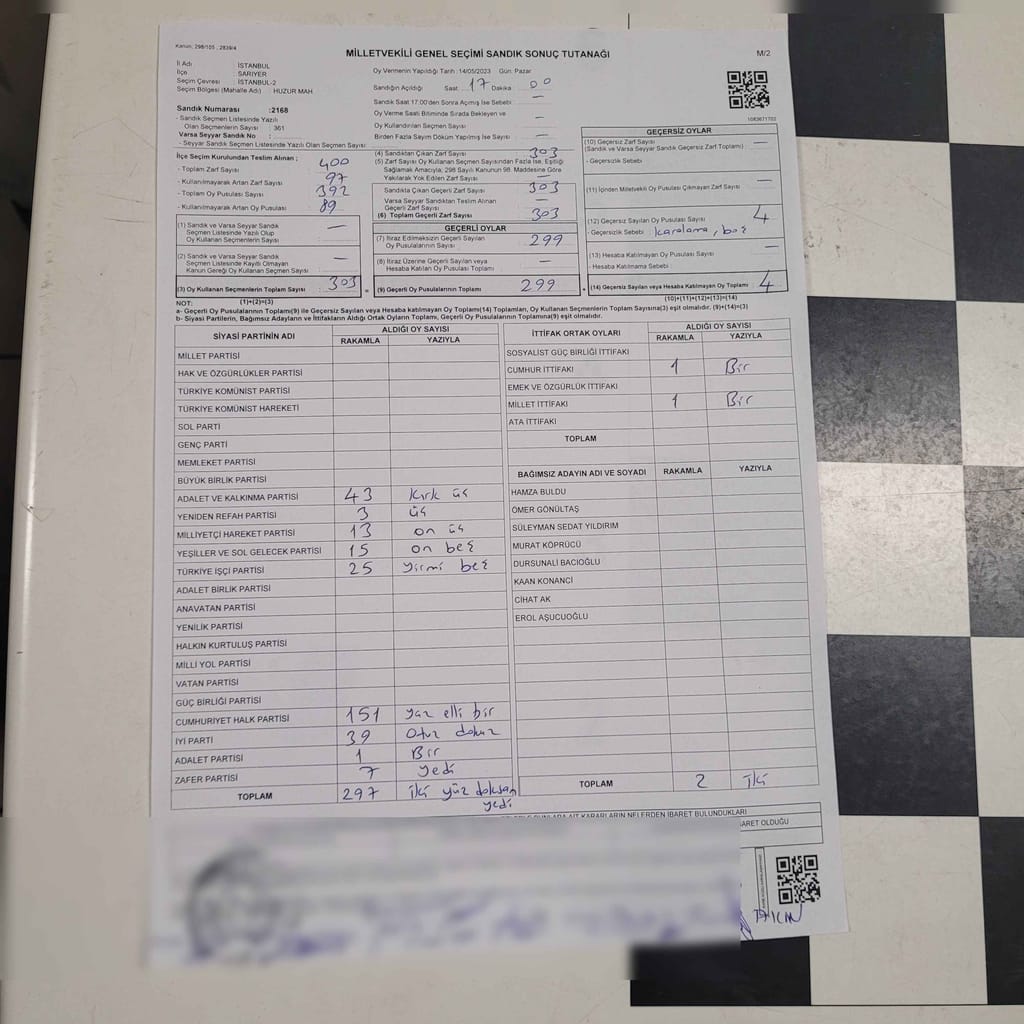 Kanun, 298/105 , 2839/4
MİLLETVEKİLİ GENEL SEÇİMİ SANDIK SONUÇ TUTANAĞI
M/2
İl Adı : İSTANBUL
İlçe : SARIYER
Seçim Çevresi : İSTANBUL-2
Seçim Bölgesi (Mahalle Adı) : HUZUR MAH
Sandık Numarası :2168
- Sandık Seçmen Listesinde Yazılı
Olan Seçmenlerin Sayısı : 361
Varsa Seyyar Sandık No :
- Seyyar Sandık Seçmen Listesinde Yazılı Olan Seçmen Sayısı :
Oy Vermenin Yapıldığı Tarih : 14/05/2023 Gün: Pazar
Sandığın Açıldığı Saat: 17 Dakika 00
Sandık Saat 17:00'den Sonra Açılmış İse Sebebi : —
Oy Verme Saati Bitiminde Sırada Bekleyen ve
Oy Kullandırılan Seçmen Sayısı : —
Birden Fazla Sayım Döküm Yapılmış İse Sayısı : —
1083671702
İlçe Seçim Kurulundan Teslim Alınan ;
- Toplam Zarf Sayısı : 400
- Kullanılmayarak Artan Zarf Sayısı : 97
- Toplam Oy Pusulası Sayısı : 392
- Kullanılmayarak Artan Oy Pusulası : 89
(1) Sandık ve Varsa Seyyar Sandık
Seçmen Listesinde Yazılı Olup
Oy Kullanan Seçmenlerin Sayısı : —
(2) Sandık ve Varsa Seyyar Sandık
Seçmen Listesinde Kayıtlı Olmayan
Kanun Gereği Oy Kullanan Seçmen Sayısı : —
(3) Oy Kullanan Seçmenlerin Toplam Sayısı : 303
(4) Sandıktan Çıkan Zarf Sayısı : 303
(5) Zarf Sayısı Oy Kullanan Seçmen Sayısından Fazla İse, Eşitliği
Sağlamak Amacıyla; 298 Sayılı Kanunun 98. Maddesine Göre
Yakılarak Yok Edilen Zarf Sayısı : —
Sandıkta Çıkan Geçerli Zarf Sayısı : 303
Varsa Seyyar Sandıktan Teslim Alınan
Geçerli Zarf Sayısı : —
(6) Toplam Geçerli Zarf Sayısı : 303
GEÇERLİ OYLAR
(7) İtiraz Edilmeksizin Geçerli Sayılan
Oy Pusulalarının Sayısı : 299
(8) İtiraz Üzerine Geçerli Sayılan veya
Hesaba Katılan Oy Pusulası Toplamı : —
(9) Geçerli Oy Pusulalarının Toplamı : 299
GEÇERSİZ OYLAR
(10) Geçersiz Zarf Sayısı
(Sandık ve Varsa Seyyar Sandık Geçersiz Zarf Toplamı) : —
- Geçersizlik Sebebi :
(11) İçinden Milletvekili Oy Pusulası Çıkmayan Zarf Sayısı : —
(12) Geçersiz Sayılan Oy Pusulası Sayısı : 4
- Geçersizlik Sebebi : karalama, boş
(13) Hesaba Katılmayan Oy Pusulası Sayısı : —
- Hesaba Katılmama Sebebi :
(14) Geçersiz Sayılan veya Hesaba Katılmayan Oy Toplamı : 4
NOT: (1)+(2)=(3) (10)+(11)+(12)+(13)=(14)
a- Geçerli Oy Pusulalarının Toplamı(9) ile Geçersiz Sayılan veya Hesaba katılmayan Oy Toplamı(14) Toplamları, Oy Kullanan Seçmenlerin Toplam Sayısına(3) eşit olmalıdır. (9)+(14)=(3)
b- Siyasi Partilerin, Bağımsız Adayların ve İttifakların Aldığı Ortak Oyların Toplamı, Geçerli Oy Pusulalarının Toplamına(9) eşit olmalıdır.
SİYASİ PARTİNİN ADI ALDIĞI OY SAYISI
RAKAMLA YAZIYLA
MİLLET PARTİSİ
HAK VE ÖZGÜRLÜKLER PARTİSİ
TÜRKİYE KOMÜNİST PARTİSİ
TÜRKİYE KOMÜNİST HAREKETİ
SOL PARTİ
GENÇ PARTİ
MEMLEKET PARTİSİ
BÜYÜK BİRLİK PARTİSİ
ADALET VE KALKINMA PARTİSİ 43 kırk üç
YENİDEN REFAH PARTİSİ 3 üç
MİLLİYETÇİ HAREKET PARTİSİ 13 on üç
YEŞİLLER VE SOL GELECEK PARTİSİ 15 on beş
TÜRKİYE İŞÇİ PARTİSİ 25 yirmi beş
ADALET BİRLİK PARTİSİ
ANAVATAN PARTİSİ
YENİLİK PARTİSİ
HALKIN KURTULUŞ PARTİSİ
MİLLİ YOL PARTİSİ
VATAN PARTİSİ
GÜÇ BİRLİĞİ PARTİSİ
CUMHURİYET HALK PARTİSİ 151 yüz elli bir
İYİ PARTİ 39 otuz dokuz
ADALET PARTİSİ 1 Bir
ZAFER PARTİSİ 7 yedi
TOPLAM 297 iki yüz doksan
yedi
İTTİFAK ORTAK OYLARI ALDIĞI OY SAYISI
RAKAMLA YAZIYLA
SOSYALİST GÜÇ BİRLİĞİ İTTİFAKI
CUMHUR İTTİFAKI 1 Bir
EMEK VE ÖZGÜRLÜK İTTİFAKI
MİLLET İTTİFAKI 1 Bir
ATA İTTİFAKI
TOPLAM
BAĞIMSIZ ADAYIN ADI VE SOYADI RAKAMLA YAZIYLA
HAMZA BULDU
ÖMER GÖNÜLTAŞ
SÜLEYMAN SEDAT YILDIRIM
MURAT KÖPRÜCÜ
DURSUNALİ BACIOĞLU
KAAN KONANCİ
CİHAT AK
EROL AŞUCUOĞLU
TOPLAM 2 iki
KARARLARIN NELERDEN İBARET BULUNDUKLARI
OLDUĞU